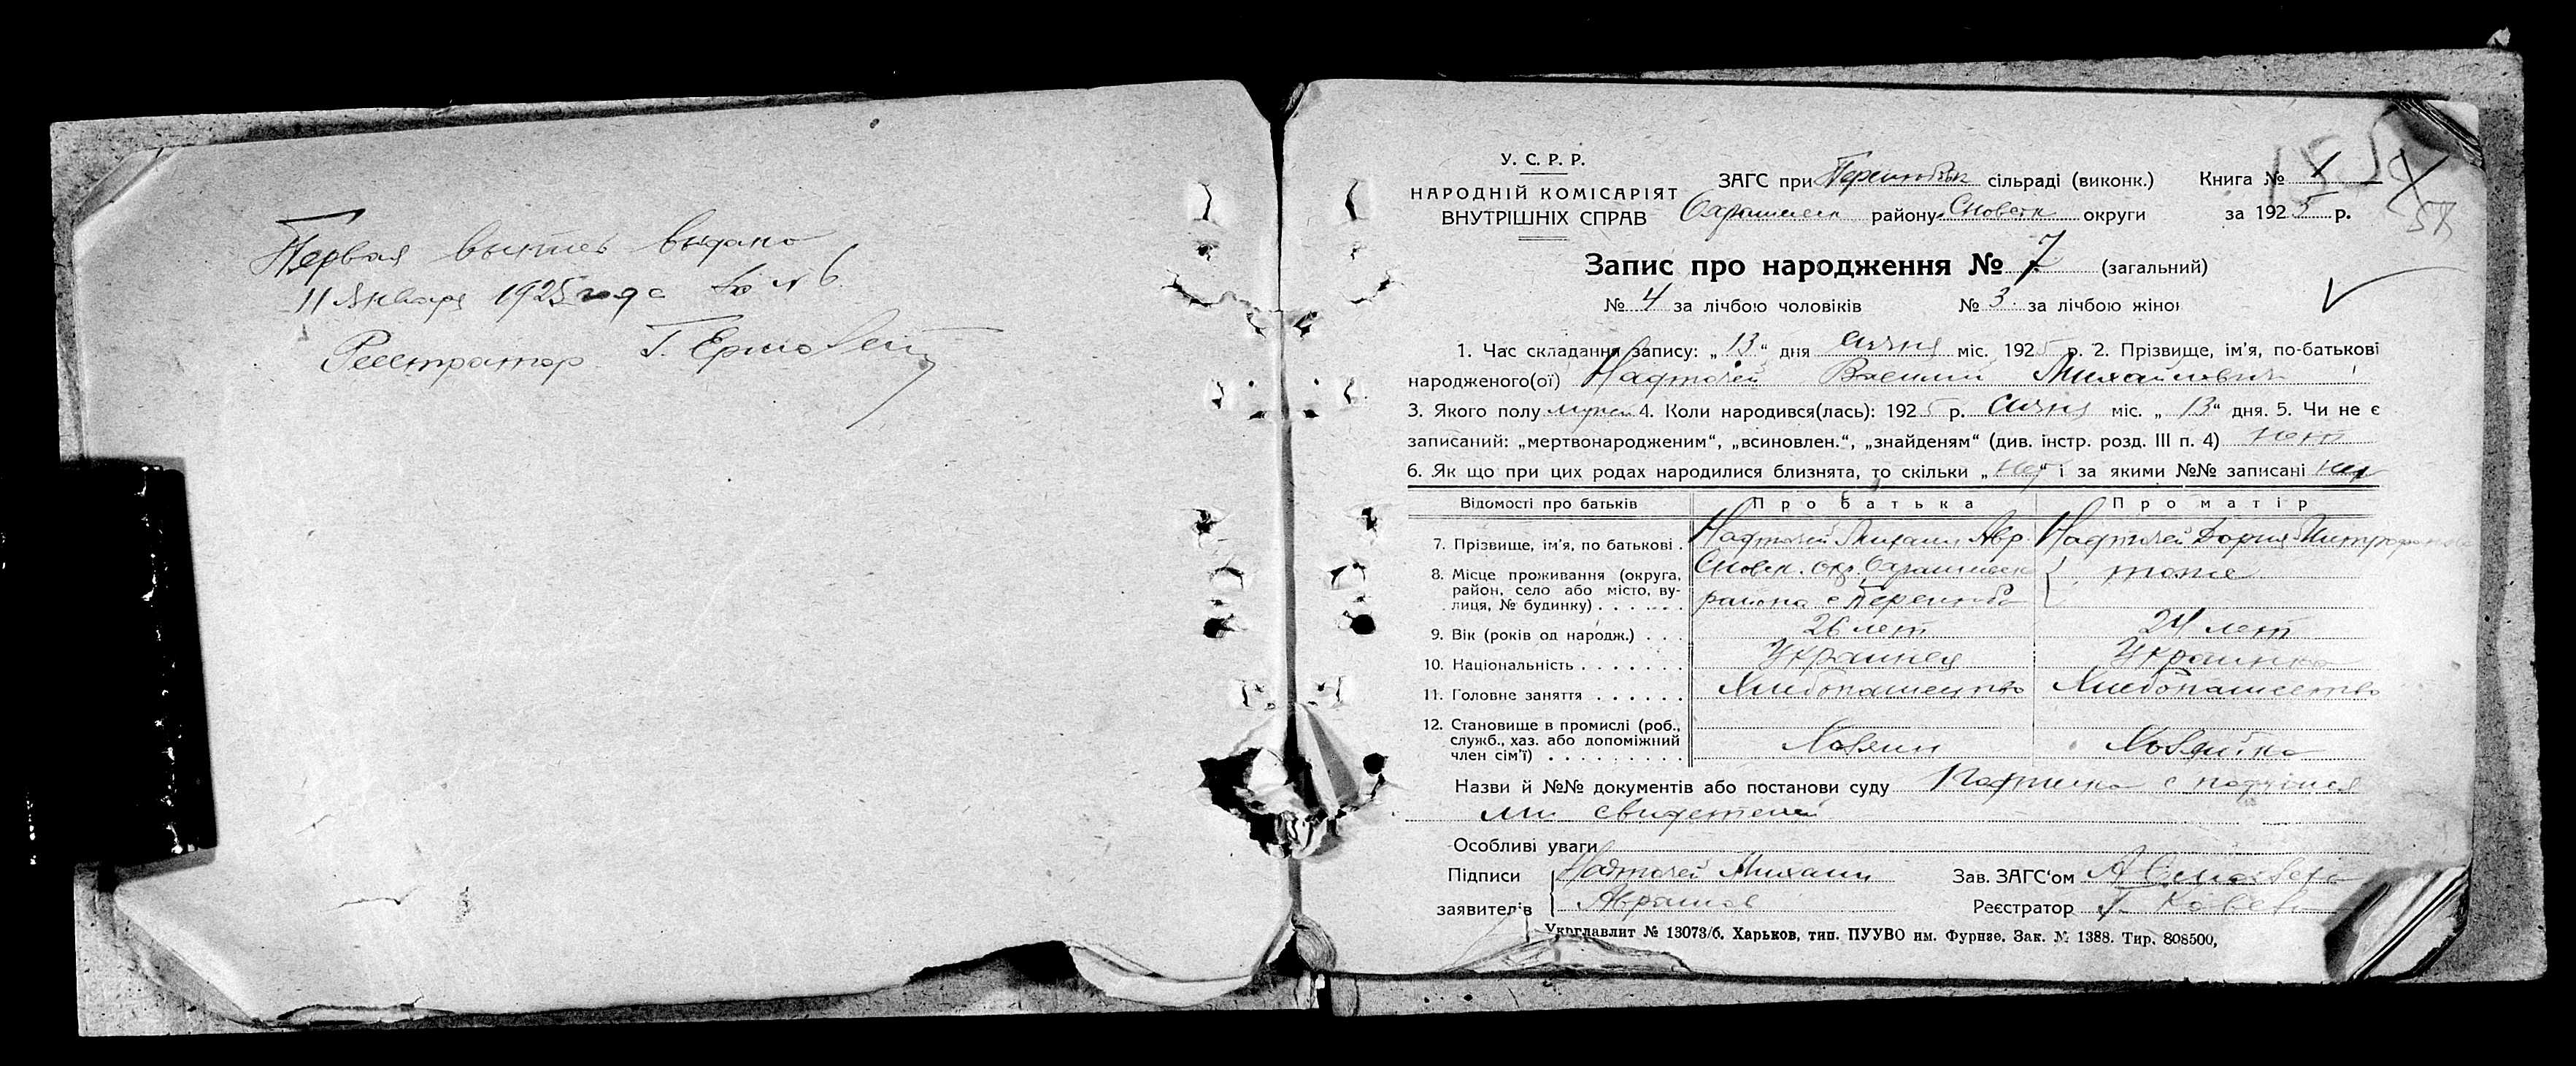 Первая выпись выдана
11 Января 1925 года за № 6
Регистратор Г.
У. С. Р. Р.
НАРОДНІЙ КОМІСАРІЯТ
ВНУТРІШНІХ СПРАВ
ЗАГС при сільраді (виконк.) Книга № 1
району Сновск округи за 1925 р.
58
Запис про народження № 7 (загальний)
№ 4 за лічбою чоловіків № 3 за лічбою жінок
1. Час складання запису: „13“ дня січня міс. 1925 р. 2. Прізвище, ім’я, по-батькові
народженого(ої) Надточей Василий Михайлович
3. Якого полу мужск 4. Коли народився(лась): 1925 р. січня міс. „13“ дня. 5. Чи не є
записаний: „мертвонародженим“, „всиновлен.“, „знайденям“ (див. інстр. розд. III п. 4) нет
6. Як що при цих родах народилися близнята, то скільки „нет“ і за якими №№ записані нет
Відомості про батьків Про батька Про матір
7. Прізвище, ім’я, по батькові . Надточей Михаил Авр. Надточей Дария Митрофановна
8. Місце проживання (округа, район, село або місто, вулиця, № будинку) . . . . . . Сновск. окр. района с тоже
9. Вік (років од народж.) . . . 26 лет 24 лет
10. Національність . . . . . . . Украинец Украинка
11. Головне заняття . . . . . . Хлебопашество Хлебопашество
12. Становище в промислі (роб., служб., хаз. або допоміжний член сім’ї) . . . . . . . . . Хозяин Хозяйка
Назви й №№ документів або постанови суду
свидетелей
Особливі уваги
Підписи Надточей Михаил Зав. ЗАГС‘ом
заявителів Аврамов Реєстратор
Укрглавлит № 13073/б. Харьков, тип. ПУУВО им. Фурнзе. Зак. № 1388. Тир. 808500,